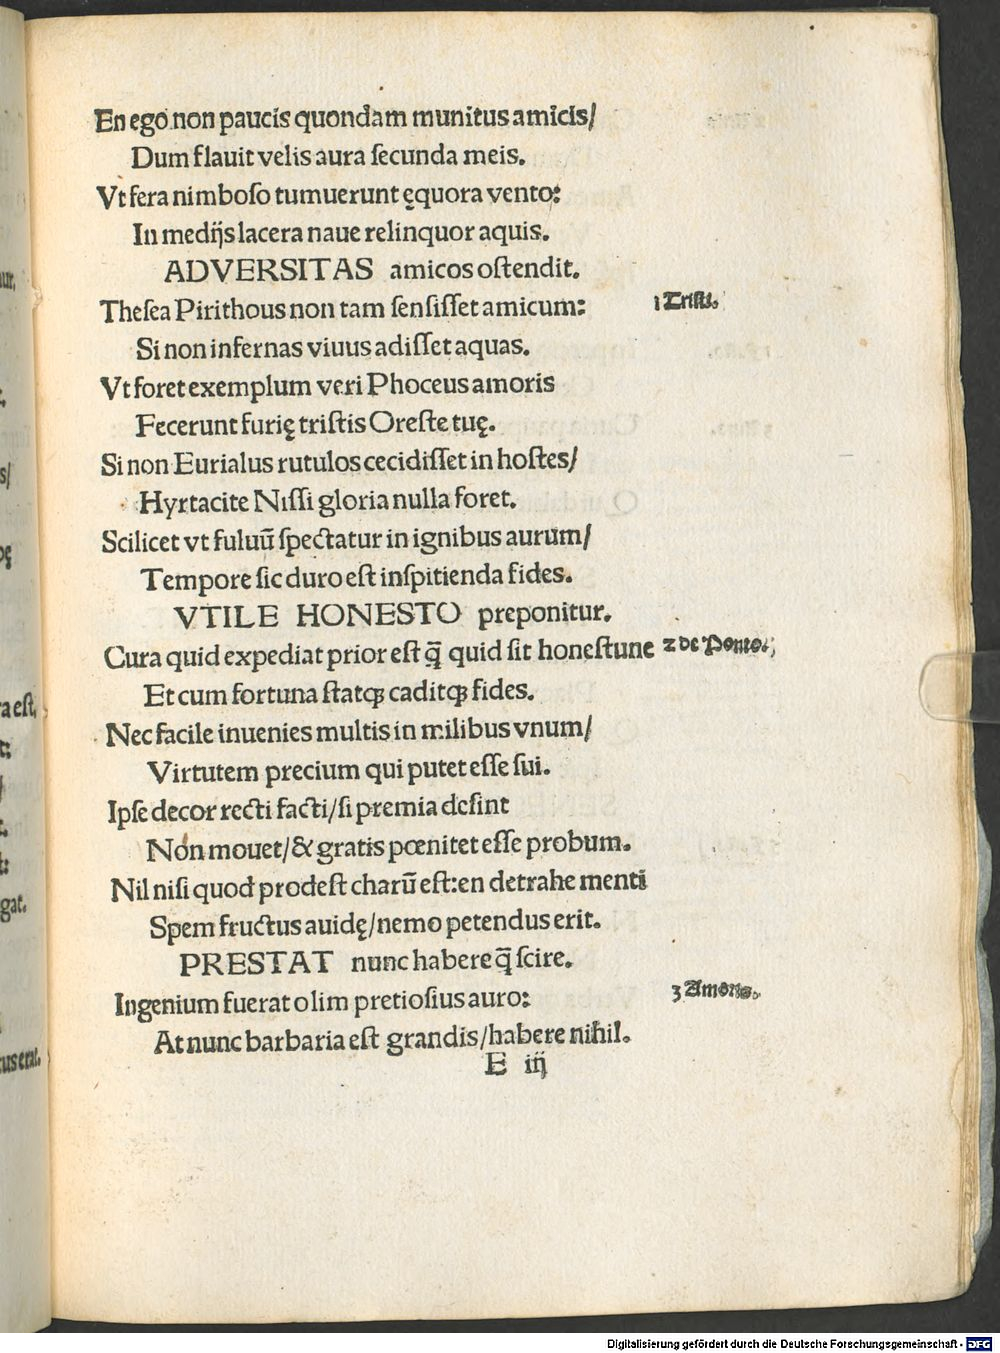 En ego non paucis quondam munitus amicis/
Dum flauit velis aura secunda meis.
Vt fera nimboso tumuerunt ęquora vento:
In medijs lacera naue relinquor aquis.
ADVERSITAS amicos ostendit.
Thesea Pirithous non tam sensisset amicum: 1 Tristi.
Si non infernas viuus adisset aquas.
Vt foret exemplum veri Phoceus amoris
Fecerunt furię tristis Oreste tuę.
Si non Eurialus rutulos cecidisset in hostes/
Hyrtacite Nissi gloria nulla foret.
Scilicet vt fuluū spectatur in ignibus aurum/
Tempore sic duro est inspitienda fides.
VTILE HONESTO preponitur.
Cura quid expediat prior est q̄ quid sit honestune 2 de Ponto.
Et cum fortuna statqꝫ caditqꝫ fides.
Nec facile inuenies multis in milibus vnum/
Virtutem precium qui putet esse sui.
Ipse decor recti facti/si premia desint
Non mouet/& gratis pœnitet esse probum.
Nil nisi quod prodest charū est:en detrahe menti
Spem fructus auidę/nemo petendus erit.
PRESTAT nunc habere q̄ scire.
Ingenium fuerat olim pretiosius auro: 3 Amorū.
At nunc barbaria est grandis/habere nihil.
E iij
Digitalisierung gefördert durch die Deutsche Forschungsgemeinschaft - DFG